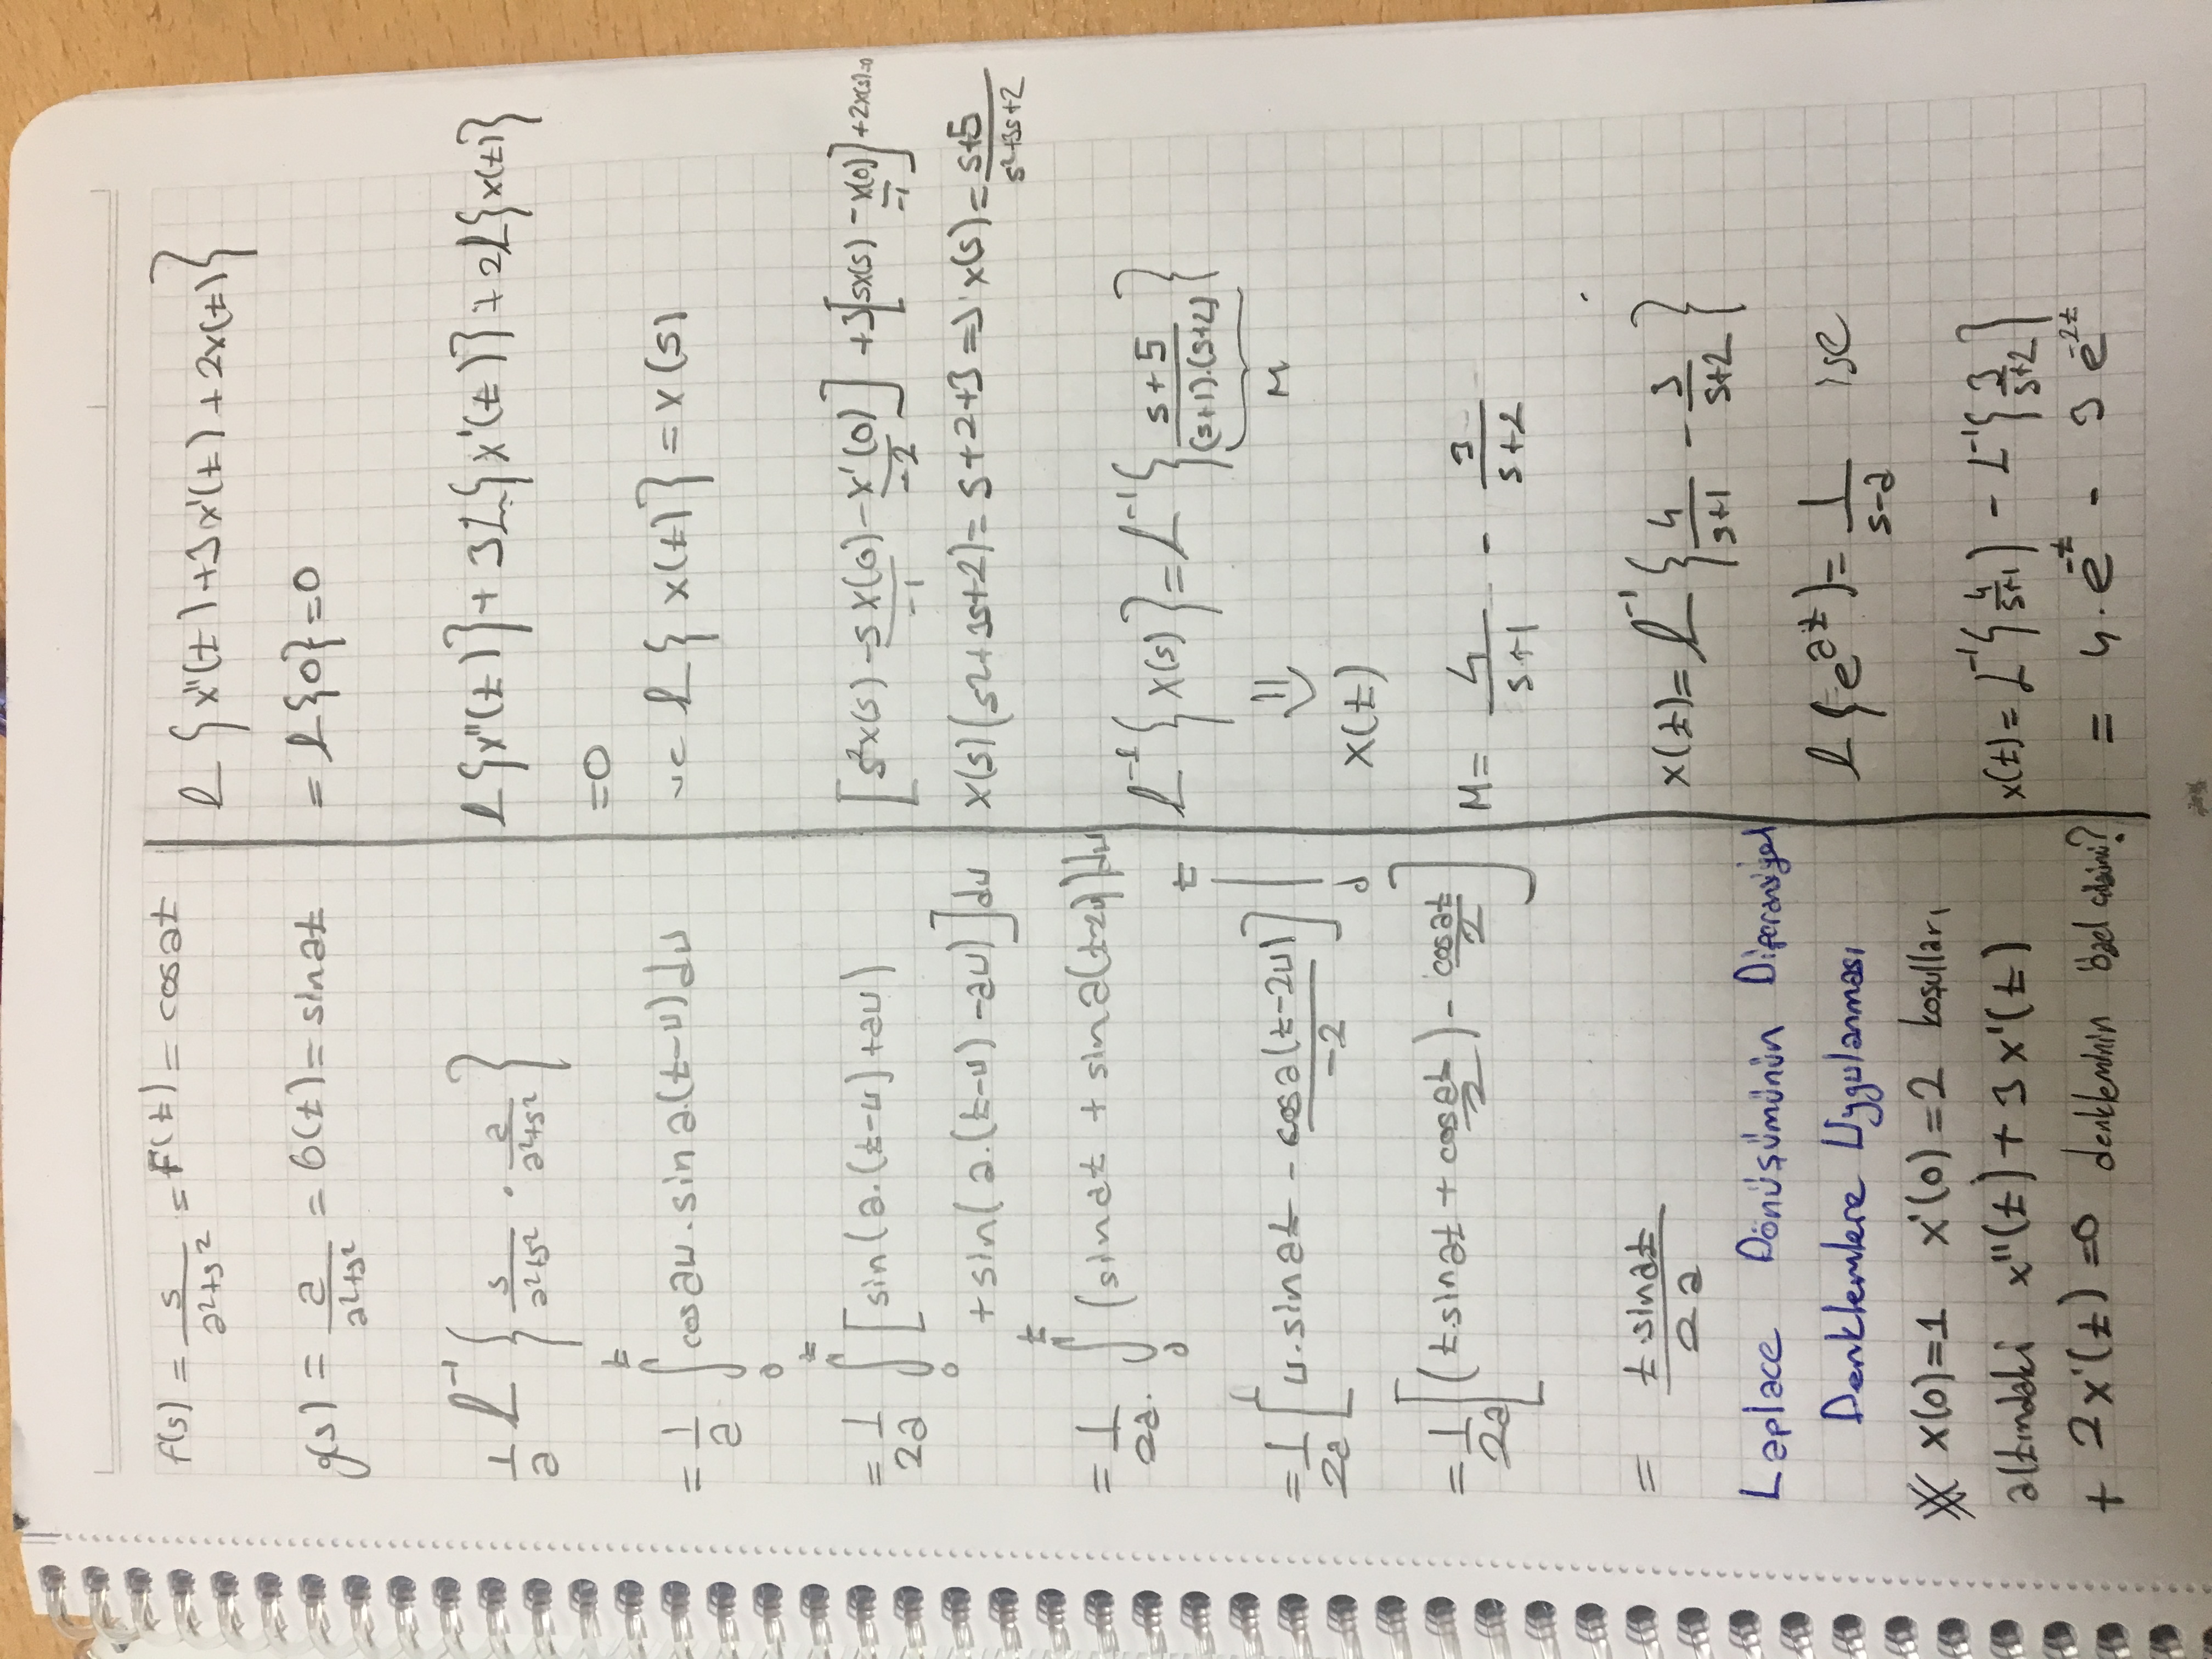 f(s) = s/(a²+s²) = F(t) = cosat
g(s) = a/(a²+s²) = G(t) = sinat
1/a L⁻¹ { s/(a²+s²) . a/(a²+s²) }
= 1/a ∫₀ᵗ cosau . sin a.(t-u) du
= 1/2a ∫₀ᵗ [ sin(a.(t-u) + au)
+ sin( a.(t-u) - au) ] du
= 1/2a . ∫₀ᵗ (sinat + sin a(t-2u)) du
= 1/2a [ u.sinat - cosa(t-2u)/-2 ] |₀ᵗ
= 1/2a [ (t.sinat + cosat/2) - cosat/2 ]
= t.sinat/2a
Laplace Dönüşümünün Diferansiyel
Denklemlere Uygulanması
※ x(0)=1 x'(0)=2 koşulları
altındaki x''(t) + 3x'(t)
+ 2x'(t) =0 denkleminin özel çözümü?
L { x''(t) + 3x'(t) + 2x(t) }
= L{0} = 0
L{x''(t)} + 3L{x'(t)} + 2L{x(t)}
=0
ve L{ x(t) } = x(s)
[ s²x(s) - s x(0) - x'(0) ] + 3[sx(s) - x(0)] + 2x(s)=0
-1 -2 -1
x(s) (s2+3s+2) = s+2+3 => x(s) = s+5/(s²+3s+2)
L⁻¹ { x(s) } = L⁻¹ { s+5/((s+1).(s+2)) }
M
⇓
x(t)
M = 4/(s+1) - 3/(s+2)
x(t) = L⁻¹ { 4/(s+1) - 3/(s+2) }
L {e^(at)} = 1/(s-a) ise
x(t) = L⁻¹{ 4/(s+1) } - L⁻¹{ 3/(s+2) }
= 4.e^(-t) - 3e^(-2t)